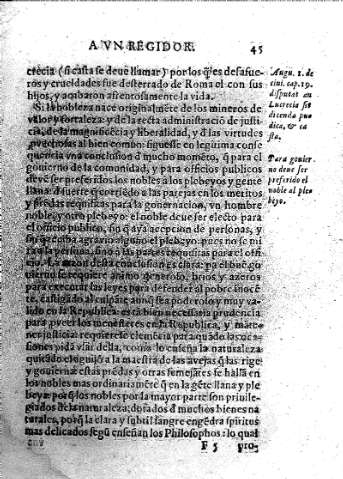 A VN REGIDOR. 45
crecia (si casta se deue llamar) por los q̃les desafue
ros y crueldades fue desterrado de Roma el con sus
hijos, y acabaron afrentosamente la vida.
Si la nobleza nace originalmẽte de los mineros de
valor y fortaleza: y de la recta administraciõ de justi
cia, de la magnificẽcia y liberalidad, y d̃ las virtudes
prouechosas al bien comun: siguesse en legitima conse
quencia vna conclusiõ d̃ mucho momẽto, q̃ para el
gouierno de la comunidad, y para officios publicos
deuẽ ser preferidos los nobles a los plebeyos y gente
llana: d̃ suerte q̃ corriẽdo a las parejas en los meritos
y prẽdas requisitas para la gouernacion, vn hombre
noble, y otro plebeyo: el noble deue ser electo para
el officio publico, sin q̃ aya accepcion de personas, y
sin q̃ reciba agrauio alguno el plebeyo: pues no se mi
ra a la persona, sino a las partes requisitas para el offi
cio. La razon desta conclusiõ es clara: pa el bue go
uierno se requiere animo generoso, brios y azeros
para executar las leyes para defender al pobre inocẽ
te, castigado al culpãte aunq̃ sea poderoso y muy va-
lido en la Republica: es tã bien necessaria prudencia
para p̃ueer los menesteres en la Republica, y mante-
ner justicia: requierese clemẽcia para quãdo las oca-
siones pidã vsar della, como lo enseña la naturaleza
quiẽdo
los nobles mas ordinariamẽte q̃ en la gẽte llana y ple
beya: porq̃ los nobles por la mayor parte son priuile-
giados de la naturaleza; dotados d̃ muchos bienes na
turales, porq̃ la clara y subtil sangre engẽdra spiritus
mas delicados segũ enseñan los Philosophos: lo qual
F 5 pro-
Augu. 1. de
ciui. cap. 19.
disputat an
Lucrecia sit
dicenda pu
dica, & ca
sta.
Para gouier
no deue ser
preferido el
noble al ple
beyo.